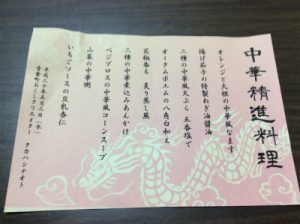 中華精進料理
オレンジと大根の中華風なます
揚げ茄子の特製ねぎ油醤油
三種の中華風天ぷら 五香塩で
オータムポエムの八角白和え
花椒香る 炙り蒸し鳳
三種の中華煮込みあんかけ
ベジブロスの中華風コーンスープ
山菜の中華粥
いちごソースの豆乳杏仁
平成二十年五月三日(木)
音食町おこしクリエイター
タカハシナオト